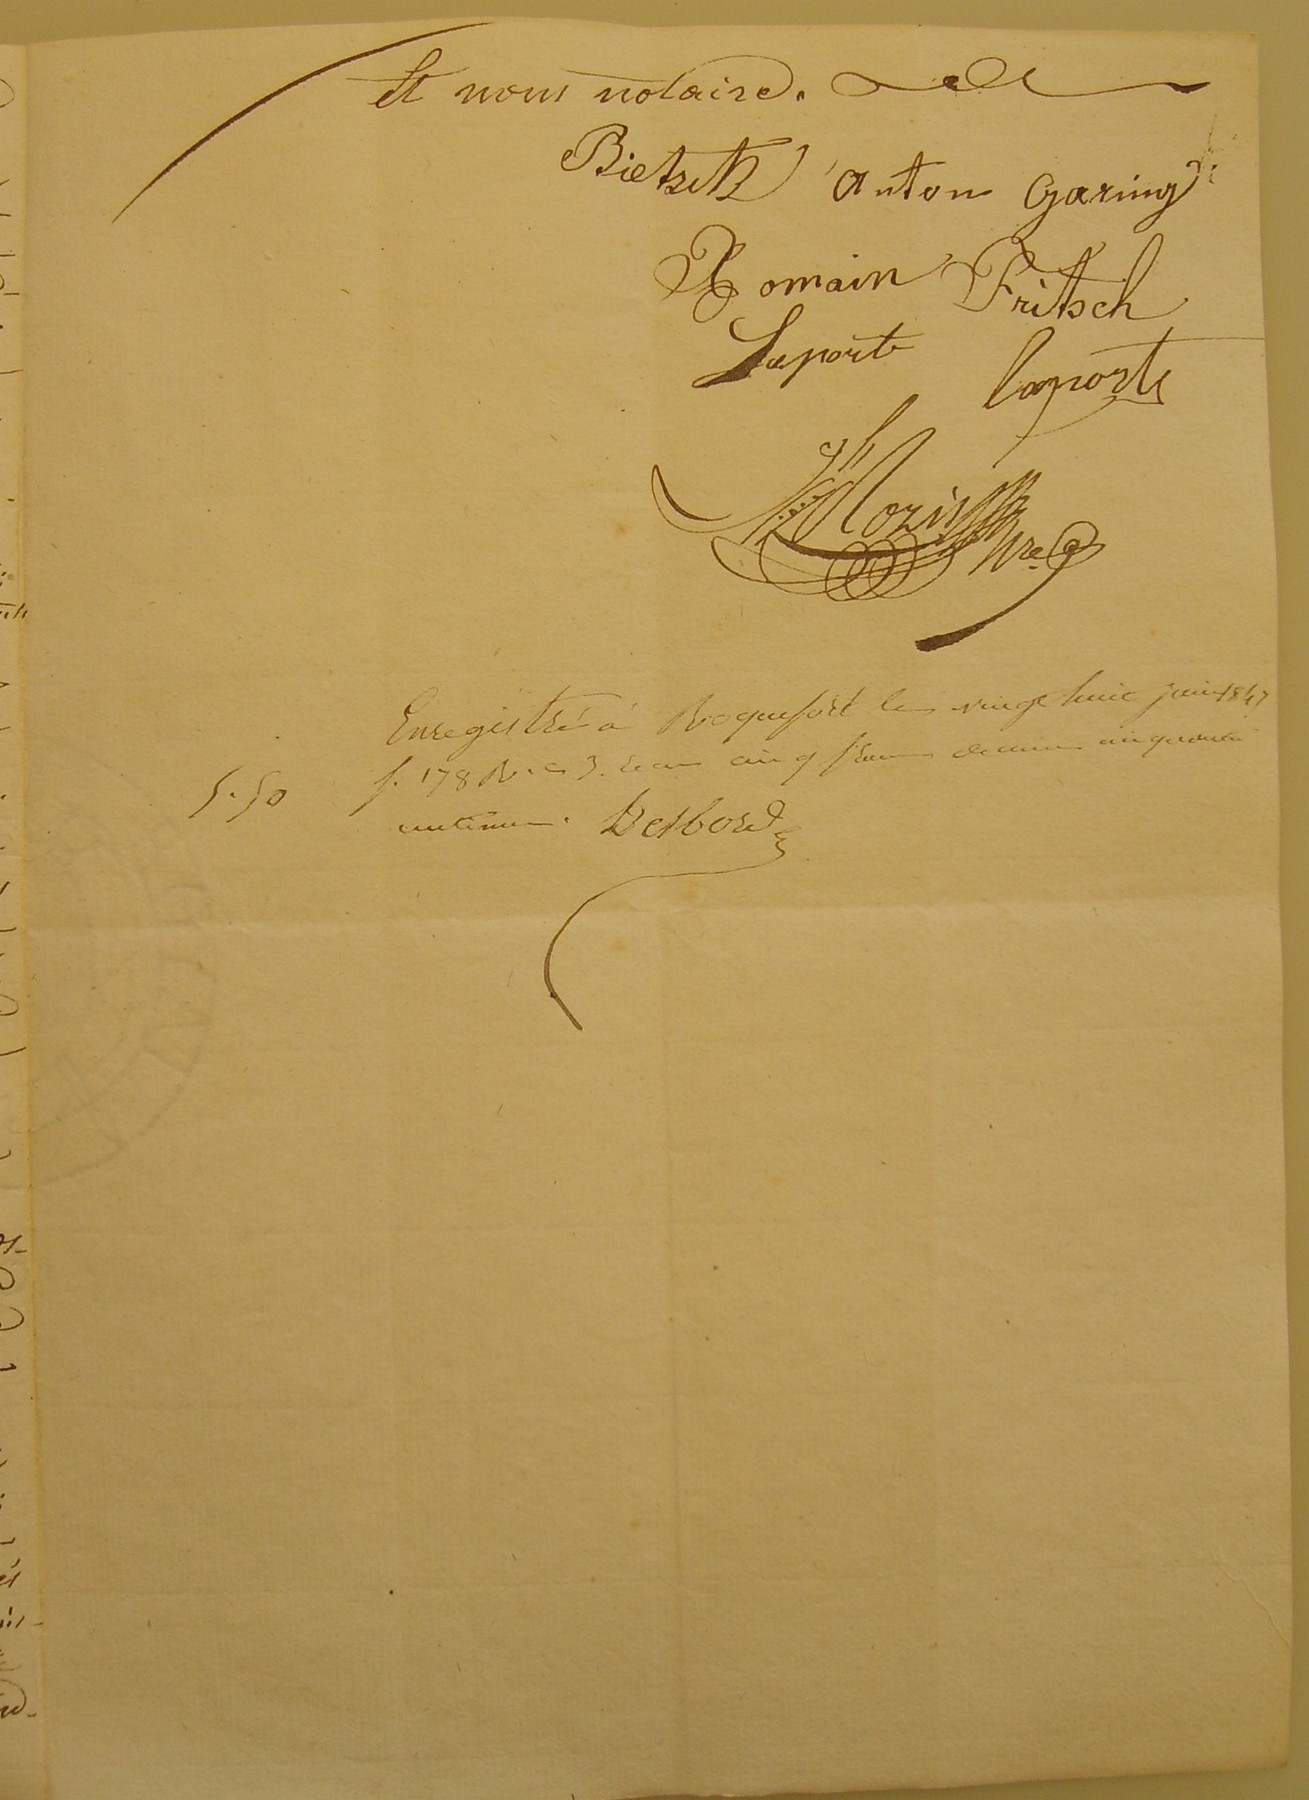 Et nous notaire.
Bietzik Anton Garing
Romain Fritsch
Laporte laporte
Nre
Enregistré à Roquefort le vingt huit juin 1847
f. 178 R. c 3. reçu cinq francs decime cinquante
5.50
centimes. Desbord